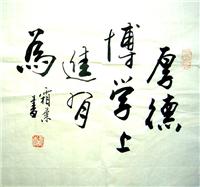 厚德
博学上
進有
為
霜葉
書